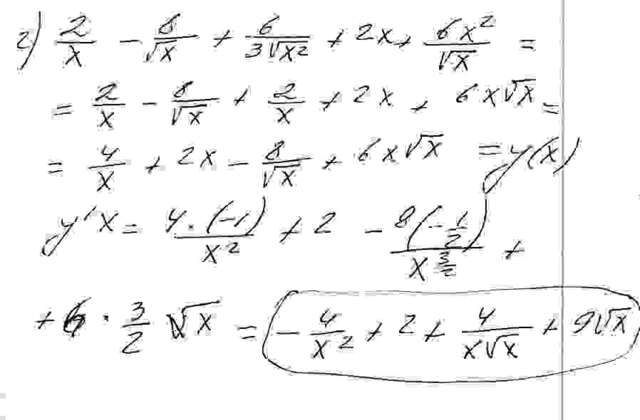 2) 2/x - 8/√x + 6/3√x² + 2x + 6x²/√x =
= 2/x - 8/√x + 2/x + 2x + 6x√x =
= 4/x + 2x - 8/√x + 6x√x = y(x)
y'x = 4·(-1)/x² + 2 - 8(-1/2)/x^(3/2) +
+ 6 · 3/2 √x = -4/x² + 2 + 4/x√x + 9√x